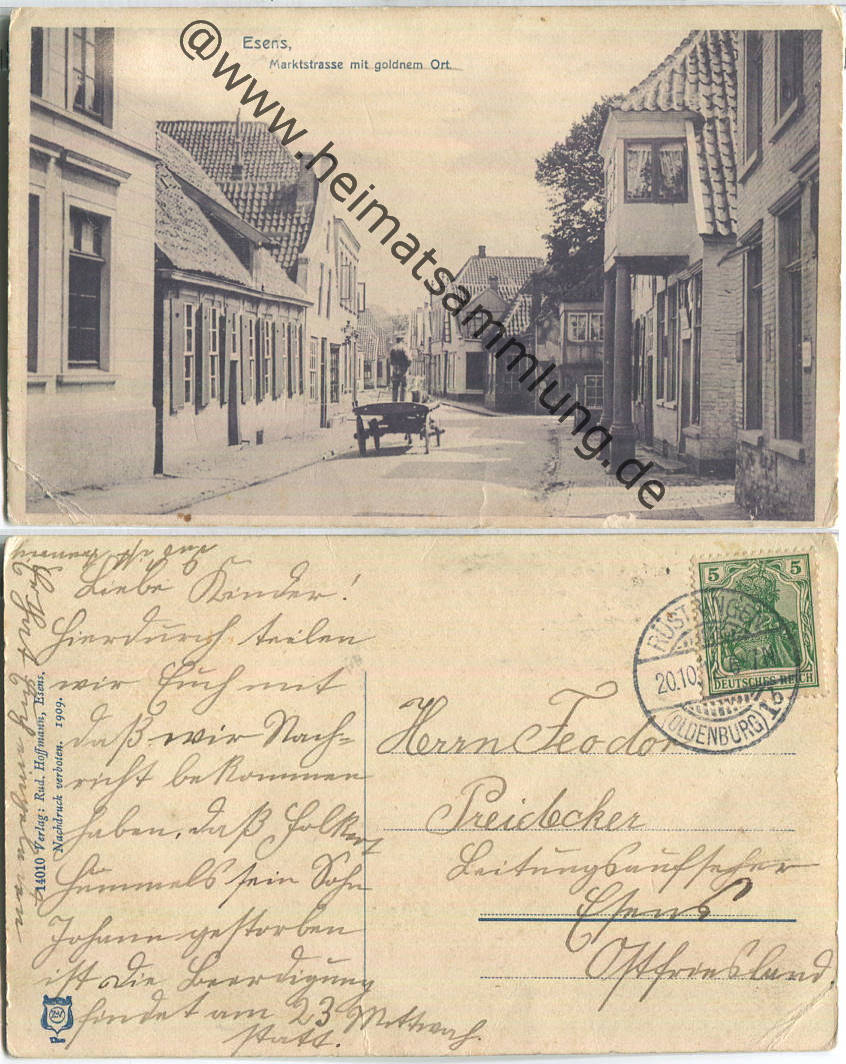 Esens,
Marktstrasse mit goldnem Ort.
@www.heimatsammlung.de
Liebe Kinder!
Hierdurch teilen
wir Euch mit
daß wir Nach=
richt bekommen
haben, daß Folkert
Hummels sein Sohn
Johann gestorben
ist die Beerdigung
findet am 23 Mittwoch
statt.
14010 Verlag: Rud. Hoffmann, Esens.
Nachdruck verboten. 1909.
5 5
DEUTSCHES REICH
RÜSTRINGEN
20.10
(OLDENBURG) 1b
Herrn Feodor
Preidecker
Leitungsaufseher
Esens
Ostfriesland.